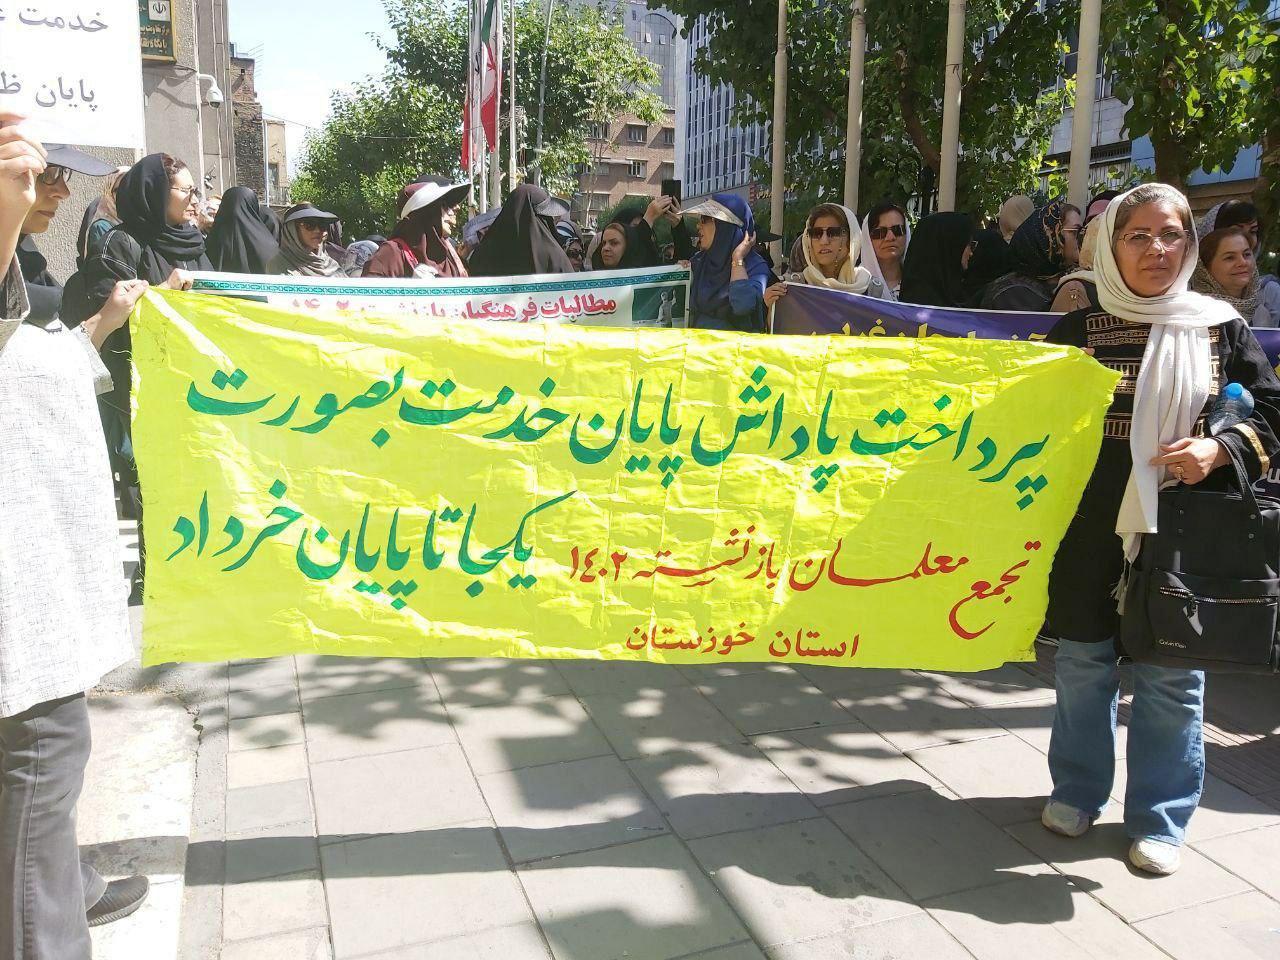 خدمت
پایان
مطالبات فرهنگیان بازنشسته ۱۴۰۲
پرداخت پاداش پایان خدمت بصورت
یکجا تا پایان خرداد
تجمع معلمان بازنشسته ۱۴۰۲
استان خوزستان
Calvin Klein